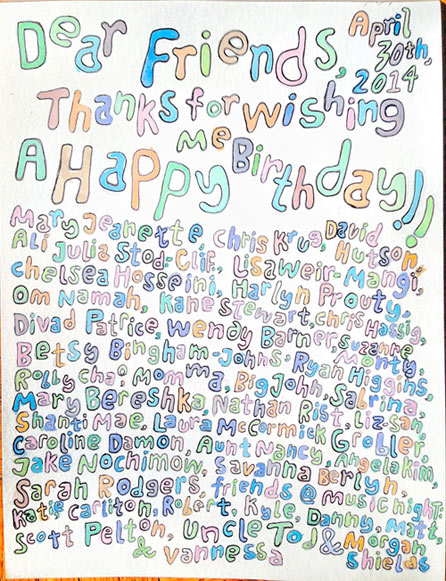 Dear Friends, April 30th, 2014
Thanks for wishing
me
A Happy Birthday!!
Mary Jeanette, Chris Krug, David
Ali, Julia Stod-Clif, Lisa Weir-Mangi, Hutson,
Chelsea Hosseini, Harlyn Prouty,
Om Namah, Kane Stewart, Chris Hassig,
Divad Patrice, Wendy Barner, Suzanne
Betsy Bingham-Johns, Ryan Monty
Rolly Cha, Momma, Big John, Higgins,
Mary Bereshka, Nathan Rist, Sabrina,
Shanti Mae, Laura McCormick, Liz-San,
Caroline Damon, Aunt Nancy, Grobler,
Jake Nochimow, Savanna Berlyn, Angela Kim,
Sarah Rodgers, friends @ music night:
Katie Carlton, Robert, Kyle, Danny, Matt,
Scott Pelton, Uncle Tod & Morgan
& Vannessa Shields